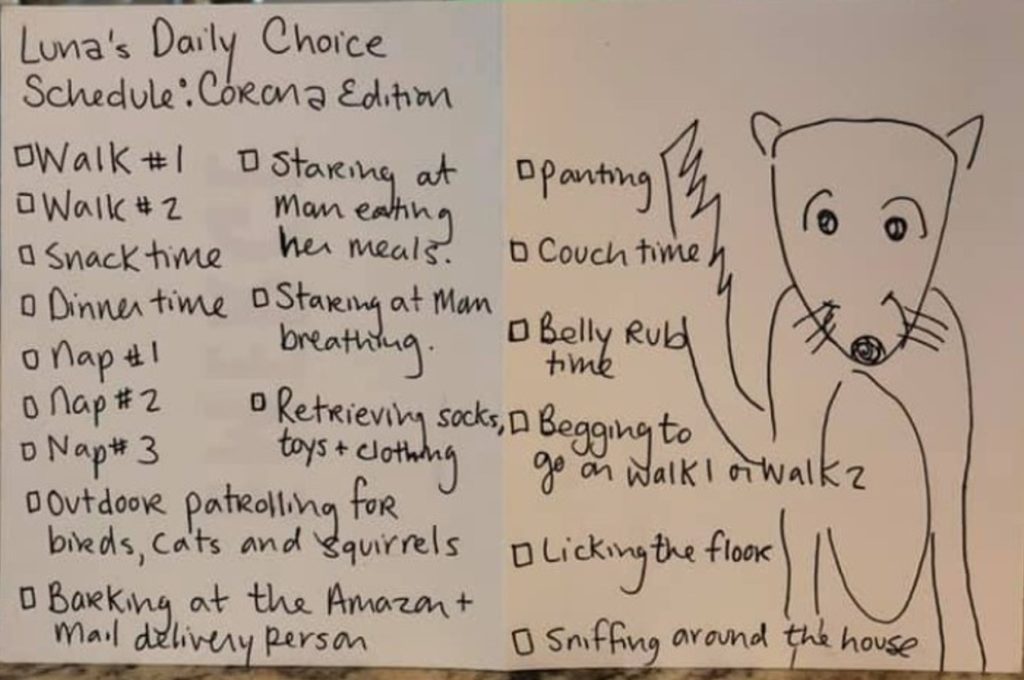 Luna's Daily Choice
Schedule: Corona Edition
Walk #1
Walk #2
Snack time
Dinner time
Nap #1
Nap #2
Nap #3
Outdoor patrolling for
birds, cats and squirrels
Barking at the Amazon +
Mail delivery person
Staring at
Man eating
her meals.
Staring at Man
breathing.
Retrieving socks,
toys + clothing
Panting
Couch time
Belly Rub
time
Begging to
go on Walk 1 or Walk 2
Licking the floor
Sniffing around the house